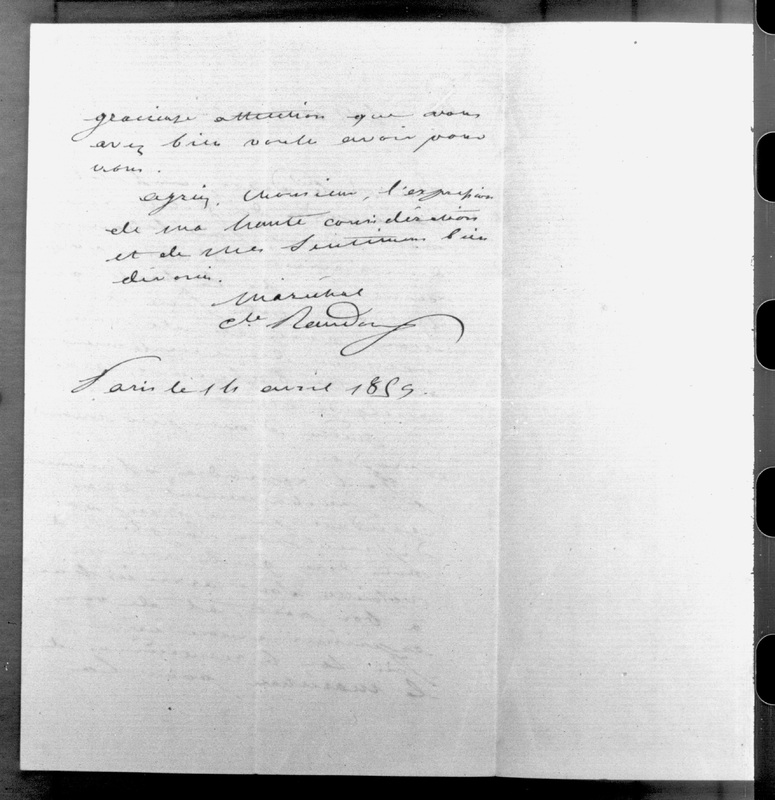 gracieuse attention que vous
avez bien voulu avoir pour
nous.
agréez, Monsieur, l'expression
de ma haute considération
et de mes sentimens bien
dévoués.
Maréchal
Cte Randon
Paris le 14 avril 1859.